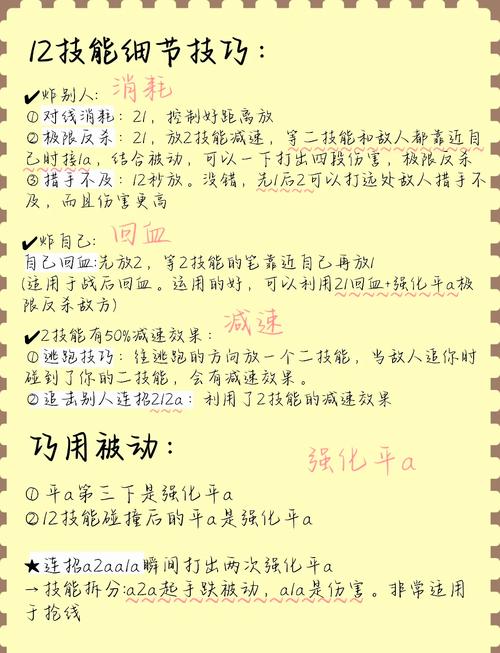 12技能细节技巧：
✔炸别人： 消耗
①对线消耗：21，控制好距离放
②极限反杀：21，放2技能减速，等二技能和敌人都靠近自
己时接1a，结合被动，可以一下打出四段伤害，极限反杀
③措手不及：12秒放。没错，先1后2可以打远处敌人措手不
及，而且伤害更高
✔炸自己： 回血
自己回血:先放2，等2技能的笔靠近自己再放1
(适用于战后回血。这用的好，可以利用21回血+强化平a极
限反杀敌方)
减速
✔2技能有50%减速效果：
①逃跑技巧：往逃跑的方向放一个二技能，当敌人追你时
碰到了你的二技能，会有减速效果。
②追击别人连招212a：利用了2技能的减速效果
巧用被动：
强化平a
①平a第三下是强化平a
②12技能碰撞后的平a是强化平a
★连招a2aa1a瞬间打出两次强化平a
→技能拆分:a2a起手跌被动，a1a是伤害。非常适用
于抢线